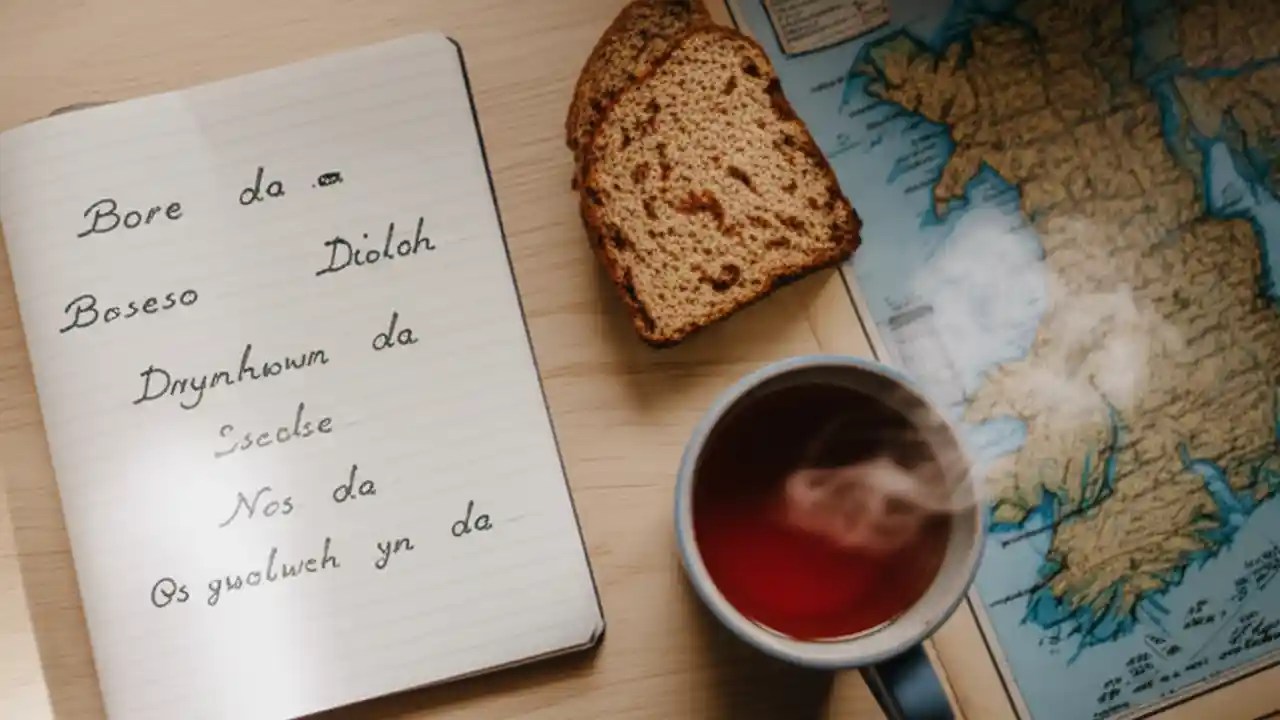 Bore da
Diolch
Boseso
Drynhown da
Sscolse
Nos da
Os gwolwch yn da